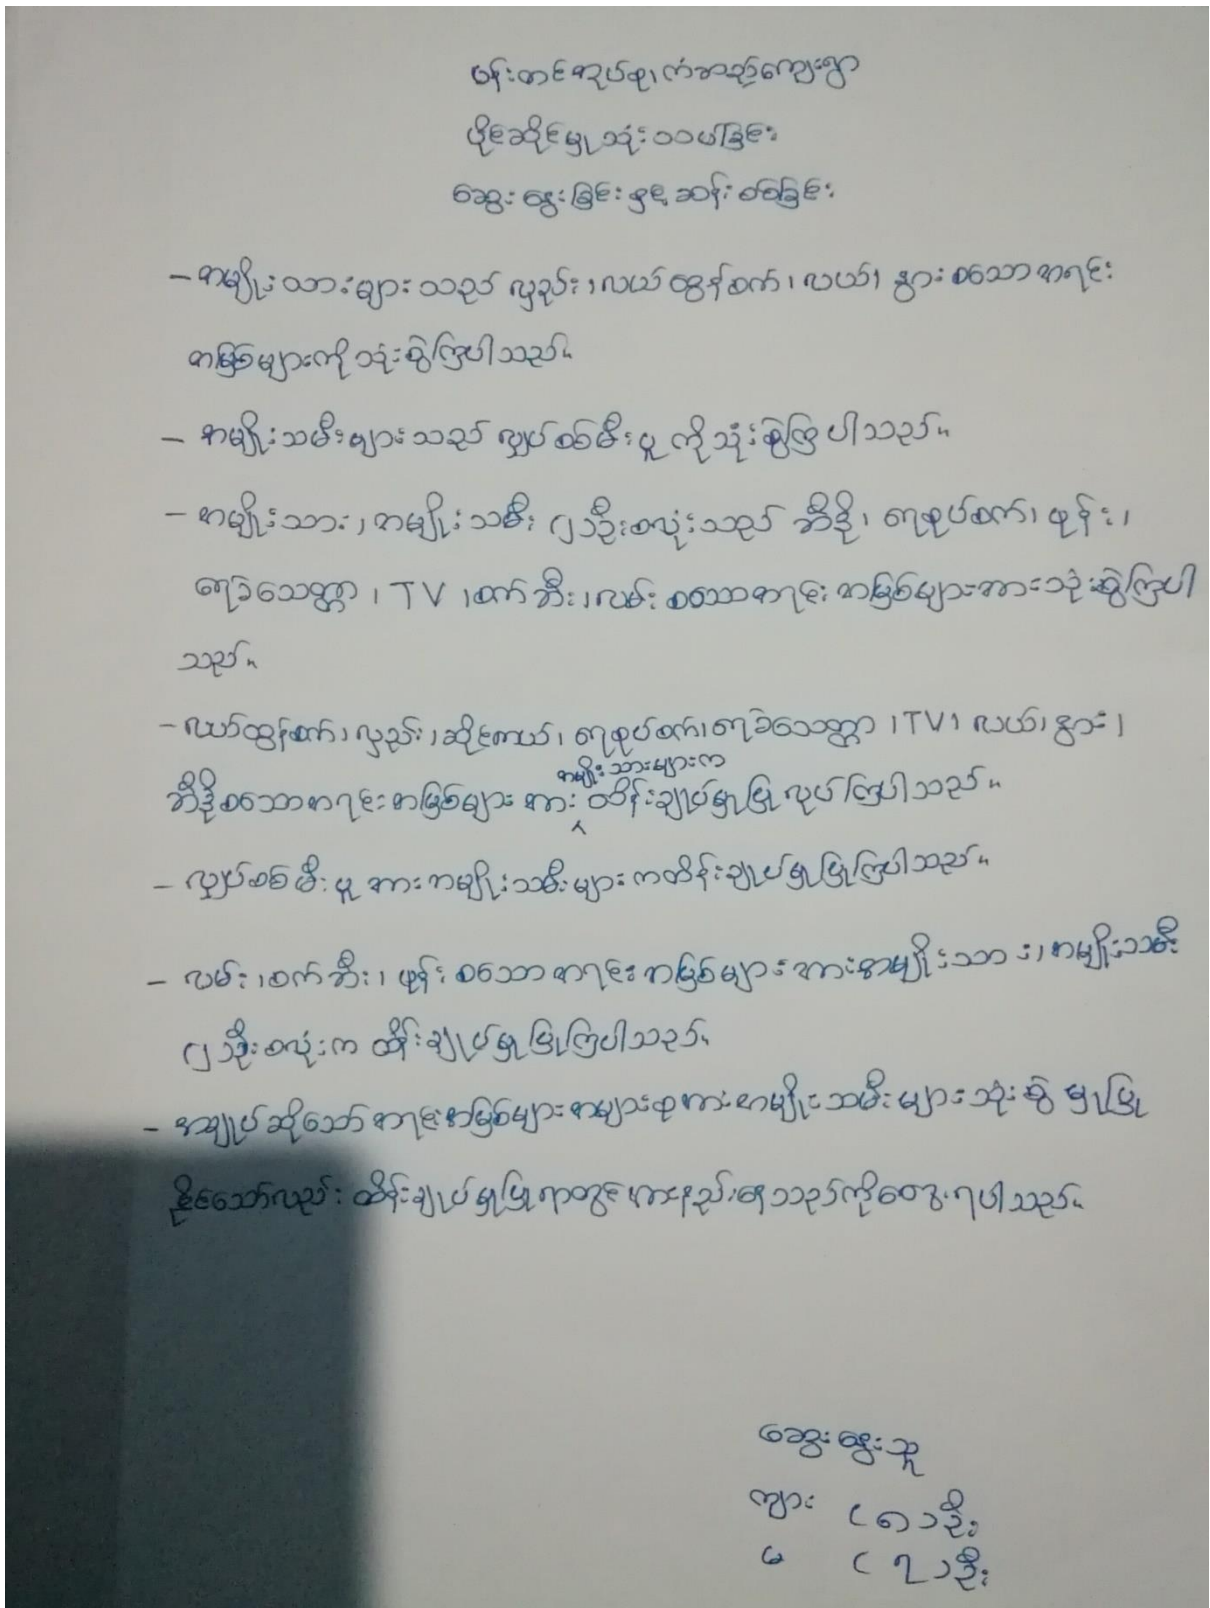 ပန်းတင်အုပ်စု၊ ကံအည့်ကျေးရွာ
ပိုင်ဆိုင်မှု သုံးသပ်ခြင်း
ဆွေးနွေးခြင်းနှင့် ဆန်းစစ်ခြင်း
- အမျိုးသားများသည် လှည်း၊ လယ်ထွန်စက်၊ လယ်၊ နွား စသောအရင်း
အမြစ်များကို သုံးစွဲကြပါသည်။
- အမျိုးသမီးများသည် လျှပ်စစ်မီးပူ ကိုသုံးစွဲကြပါသည်။
- အမျိုးသား၊ အမျိုးသမီး ၂ ဦးစလုံးသည် ဘီဒို၊ ရေစုပ်စက်၊ ဖုန်း၊
ရေခဲသေတ္တာ၊ TV ၊ စက်ဘီး၊ လမ်း စသောအရင်းအမြစ်များအား သုံးစွဲကြပါ
သည်။
- လယ်ထွန်စက်၊ လှည်း၊ ဆိုင်ကယ်၊ ရေစုပ်စက်၊ ရေခဲသေတ္တာ ၊ TV ၊ လယ်၊ နွား ၊
ဘီဒိုစသောအရင်းအမြစ်များအား အမျိုးသားများက ထိန်းချုပ်မှုပြုလုပ်ကြပါသည်။
- လျှပ်စစ်မီးပူ အားအမျိုးသမီးများ ကထိန်းချုပ်မှုပြုကြပါသည်။
- လမ်း ၊ စက်ဘီး၊ ဖုန်း စသောအရင်းအမြစ်များအားအမျိုးသား၊ အမျိုးသမီး
၂ ဦးစလုံးက ထိန်းချုပ်မှုပြုကြပါသည်။
- အချုပ်ဆိုသော် အရင်းအမြစ်များအများစုအားအမျိုးသမီးများသုံးစွဲမှုပြု
နိုင်သော်လည်း ထိန်းချုပ်မှုပြုရာတွင် အားနည်းနေသည်ကိုတွေ့ရပါသည်။
ဆွေးနွေးသူ
ကျား ( ၈ ) ဦး
မ ( ၇ ) ဦး